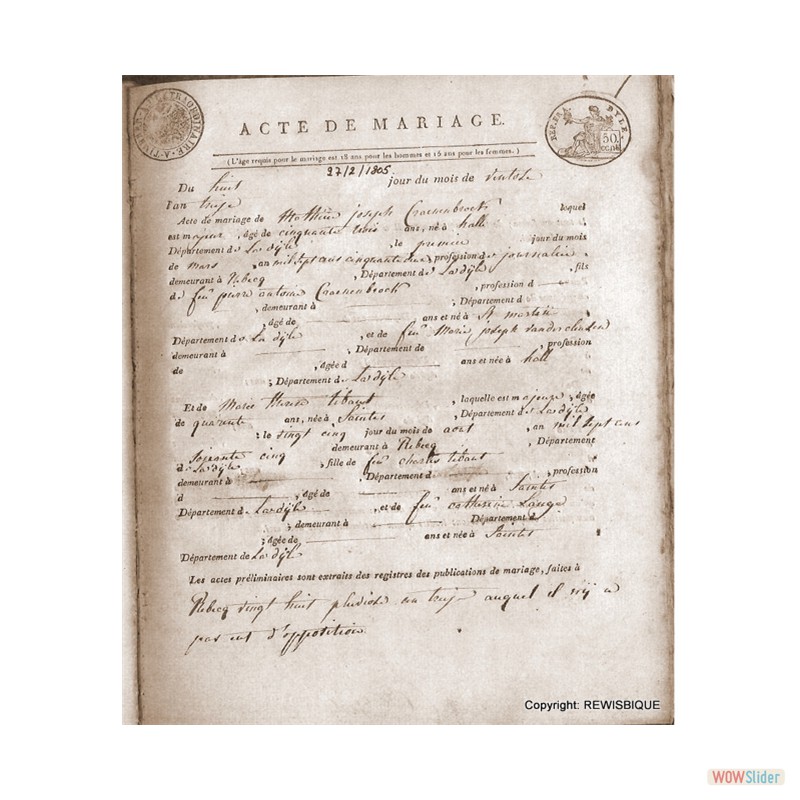 TIMBRE EXTRAORDINAIRE
REP. FRA. DYLE
50 cent
ACTE DE MARIAGE.
(L'âge requis pour le mariage est 18 ans pour les hommes et 15 ans pour les femmes.)
27/2/1805
Du huit jour du mois de ventose
l'an treize
Acte de mariage de Mathieu joseph Craenenbroek lequel
est majeur, âgé de cinquante trois ans, né à halle
Département de La dÿle, le premier jour du mois
de mars, an mil sept cens cinquante deux, profession de journalier,
demeurant à Rebecq, Département de La dÿle, fils
de feu pierre antoine Craenenbrock, profession d
, demeurant à , Département d
, âgé de ans et né à St martin
Département de La dÿle, et de feu Marie joseph
demeurant à , Département de , profession
de , âgée d ans et née à hall
; Département de La dÿle
Et de Marie therese tibaut, laquelle est majeure, âgée
de quarente ans, née à Saintes, Département de La dÿle
; le vingt cinq jour du mois de aout, an mil sept cens
soixante cinq demeurant à Rebecq, Département
de La dÿle, fille de feu charles tibaut
demeurant à , Département d , profession
d , âgé de ans et né à Saintes
Département de La dÿle, et de feu catherine
; demeurant à Département d
; âgée de ans et née à Saintes
Département de La dÿle
Les actes préliminaires sont extraits des registres des publications de mariage, faites à
Rebecq vingt huit pluviose an treize auquel il n'y a
pas eut d'opposition
Copyright: REWISBIQUE
WOWSlider